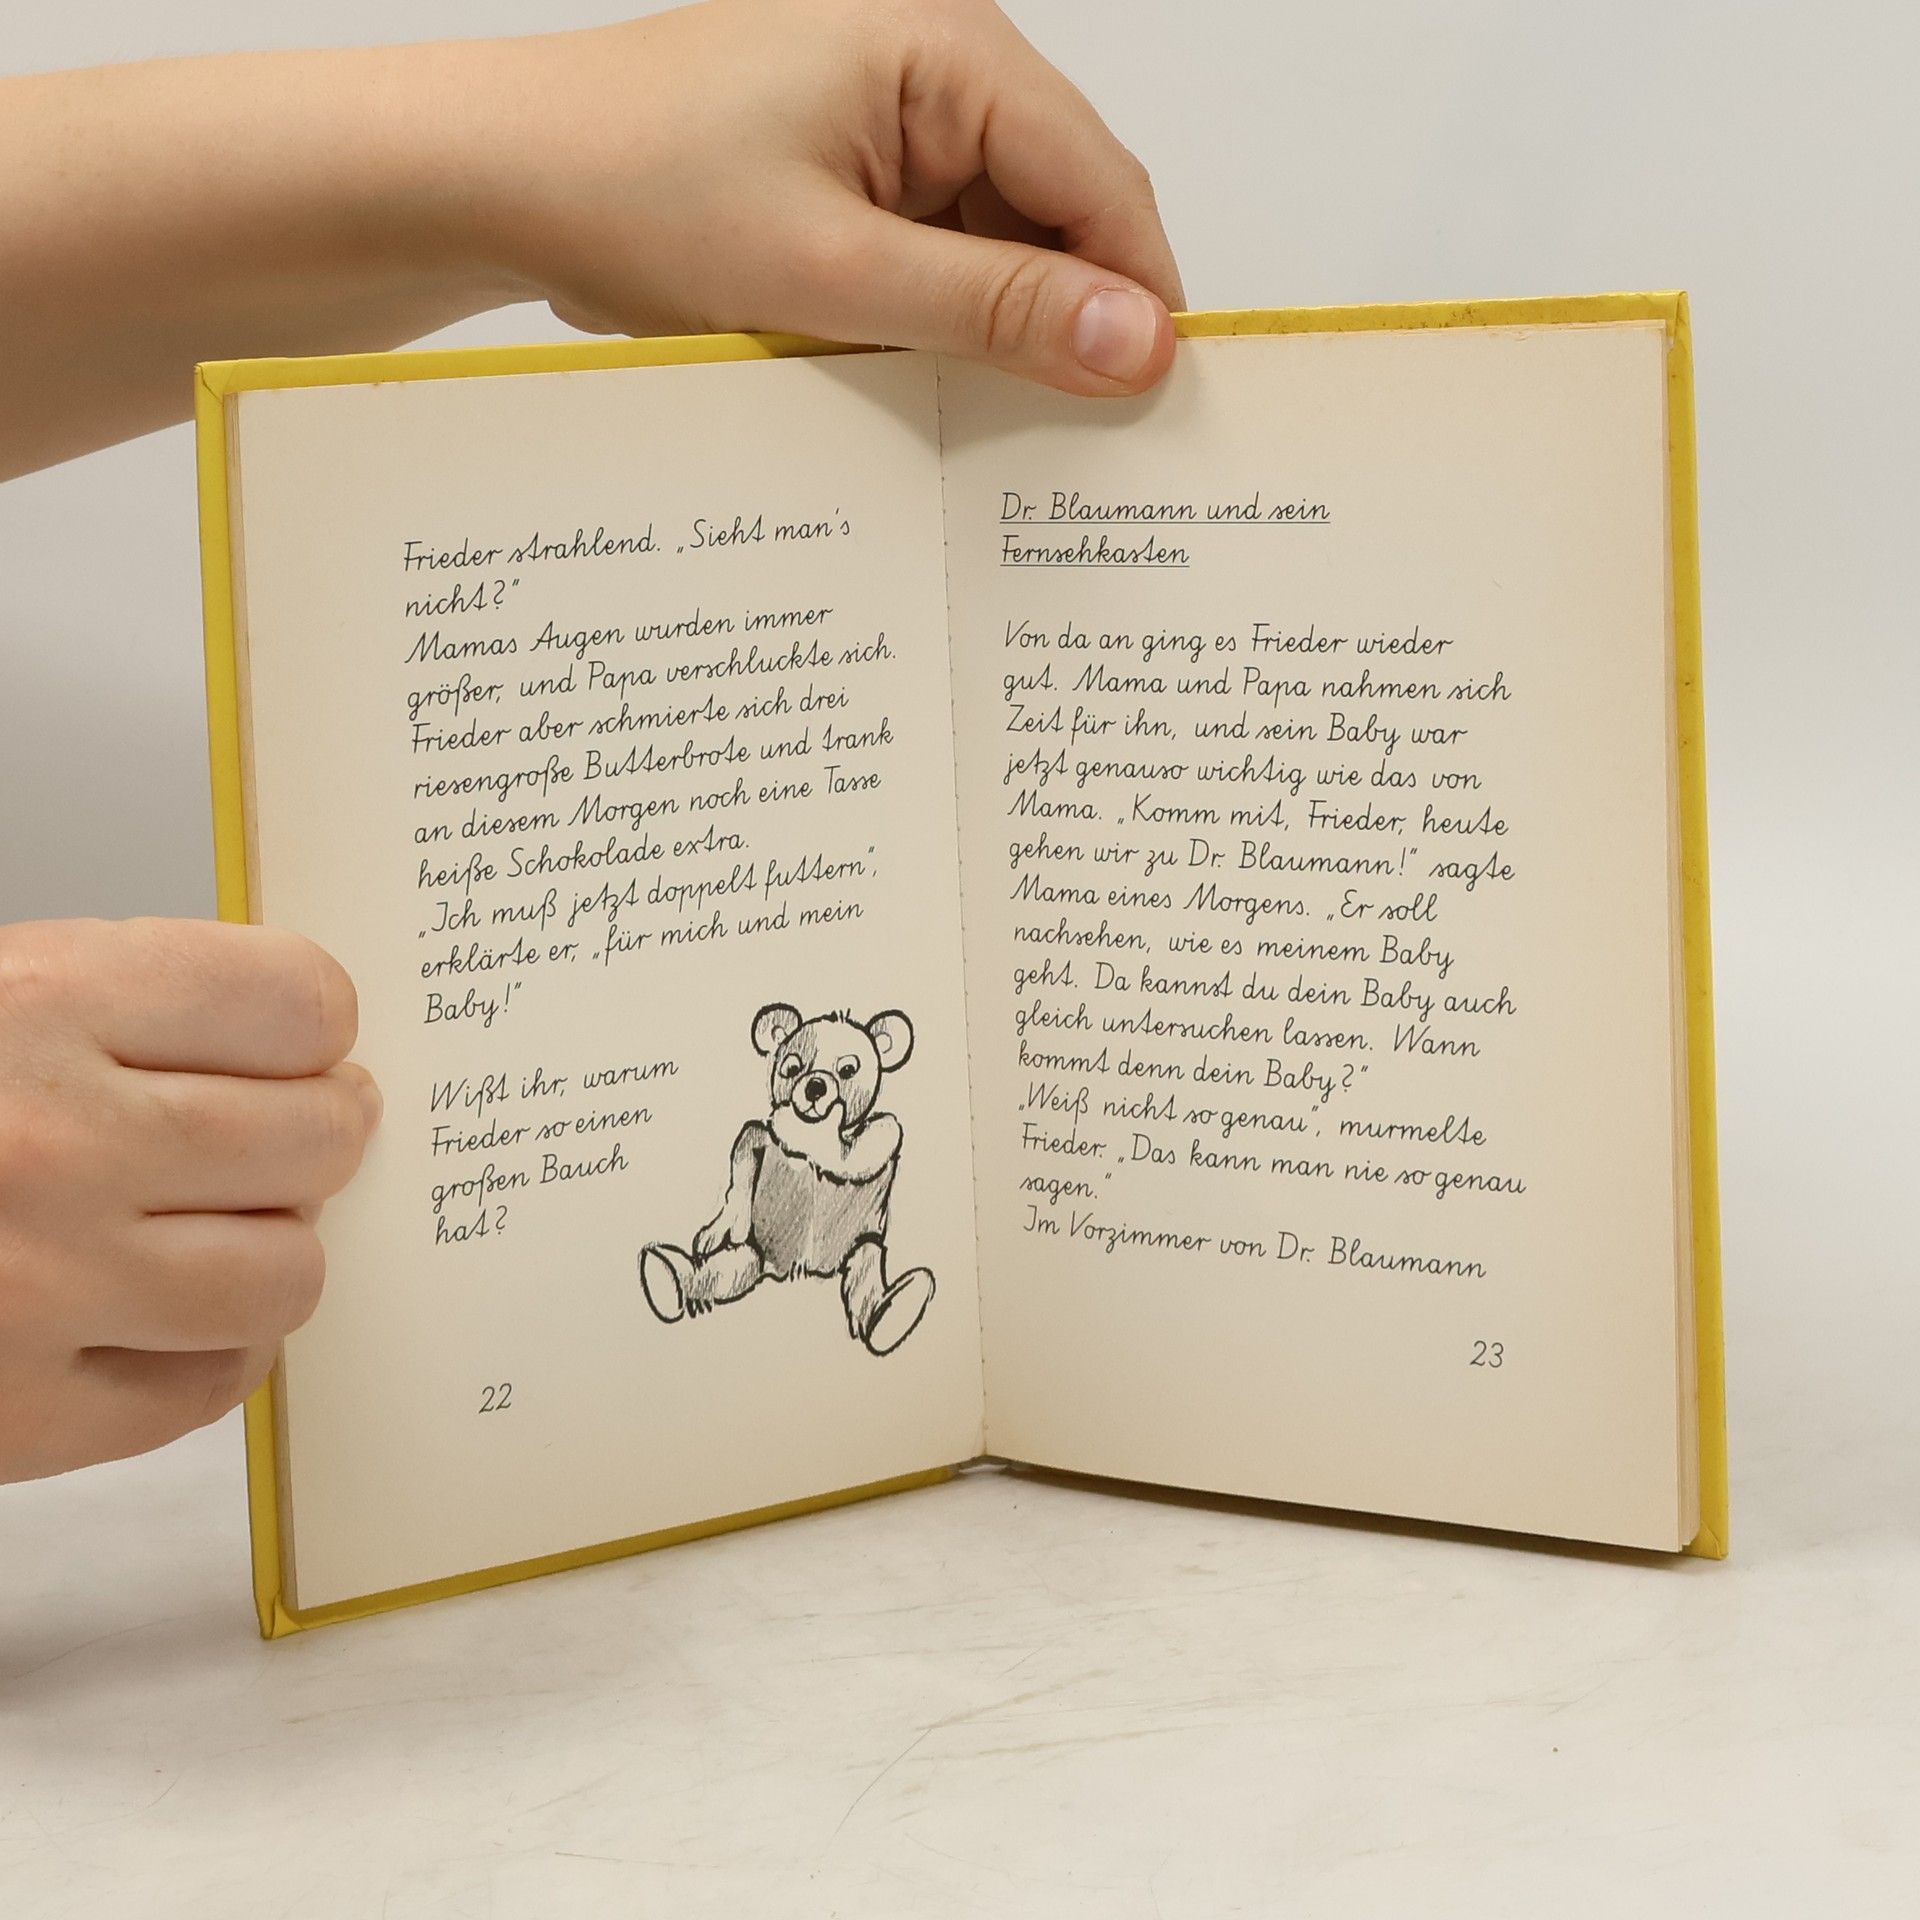 Frieder strahlend. „Sieht man's
nicht?“
Mamas Augen wurden immer
größer, und Papa verschluckte sich.
Frieder aber schmierte sich drei
riesengroße Butterbrote und trank
an diesem Morgen noch eine Tasse
heiße Schokolade extra.
„Ich muß jetzt doppelt futtern“,
erklärte er, „für mich und mein
Baby!“
Wißt ihr, warum
Frieder so einen
großen Bauch
hat?
22
Dr. Blaumann und sein
Fernsehkasten
Von da an ging es Frieder wieder
gut. Mama und Papa nahmen sich
Zeit für ihn, und sein Baby war
jetzt genauso wichtig wie das von
Mama. „Komm mit, Frieder, heute
gehen wir zu Dr. Blaumann!“ sagte
Mama eines Morgens. „Er soll
nachsehen, wie es meinem Baby
geht. Da kannst du dein Baby auch
gleich untersuchen lassen. Wann
kommt denn dein Baby?“
„Weiß nicht so genau“, murmelte
Frieder. „Das kann man nie so genau
sagen.“
Im Vorzimmer von Dr. Blaumann
23